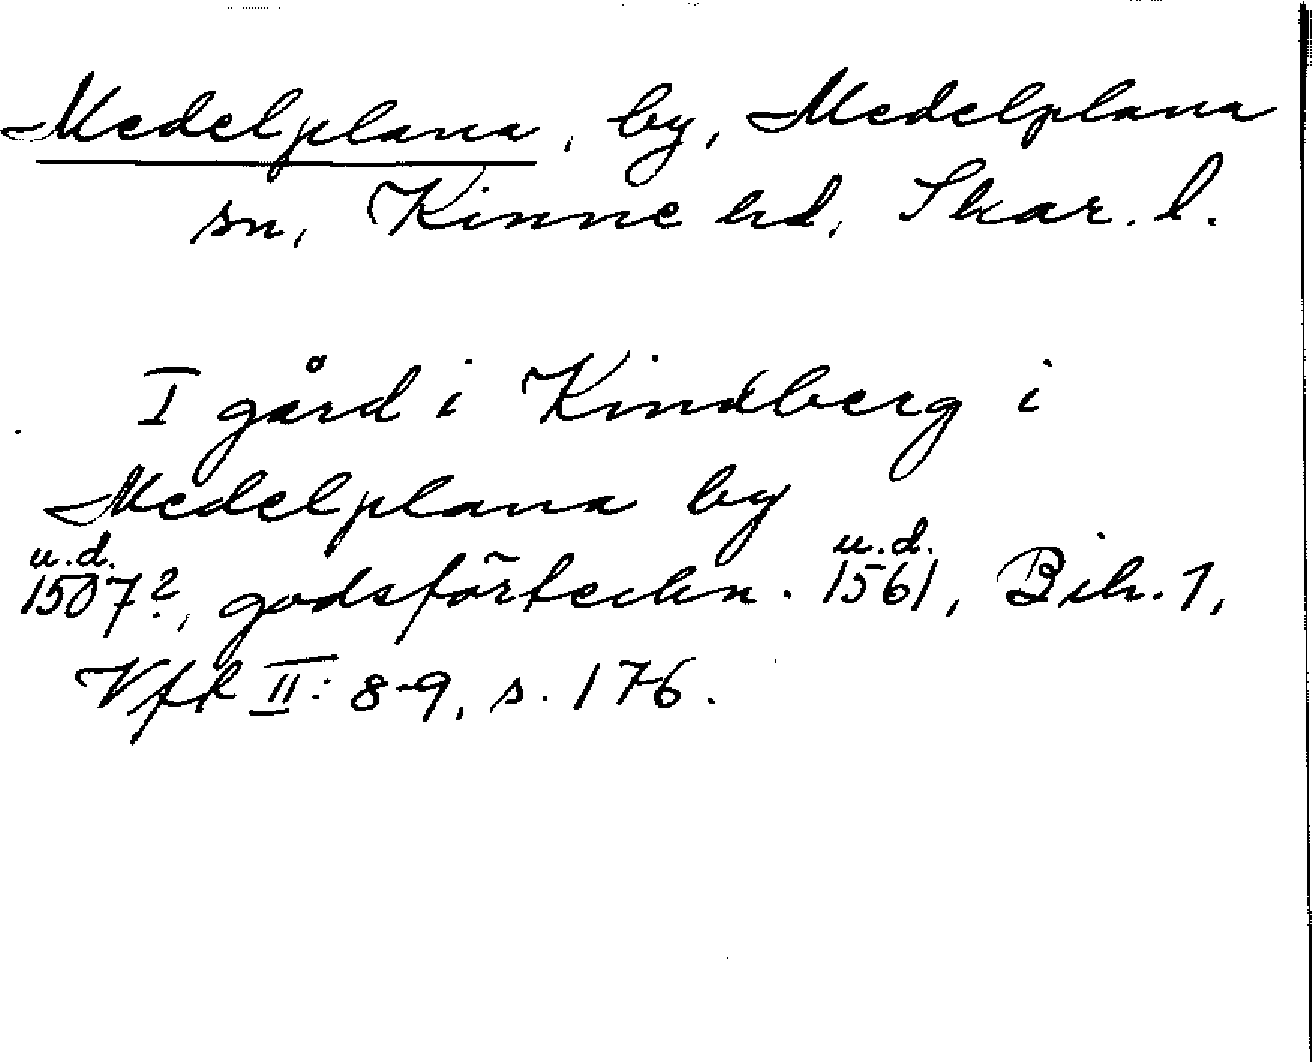 Medelplana, by, Medelplana
sn, Kinne hd, Skar. l.
I gård i Kindberg i
Medelplana by
u.d. u.d.
1507?, godsförteckn. 1561, Bih. 1,
Vfk II: 8-9, s. 176.